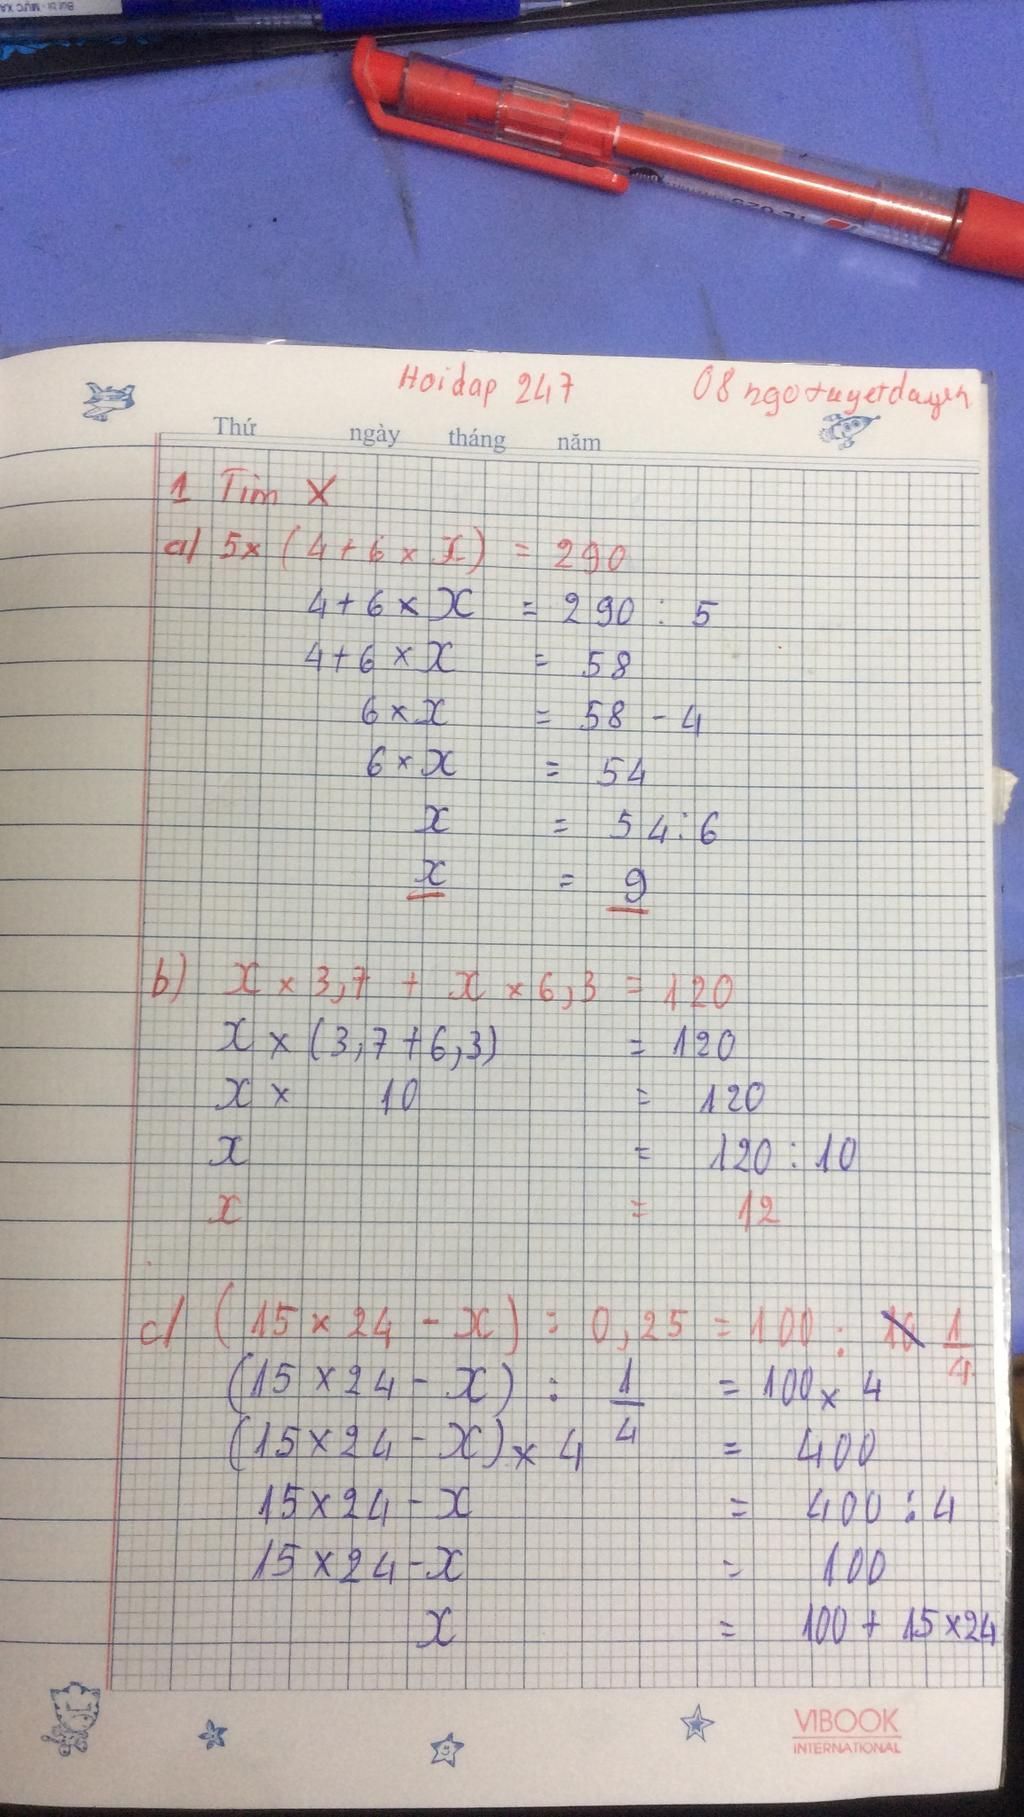 Hoidap 247 08 ngotuyetduyen
Thứ ngày tháng năm
1 Tìm X
a) 5x (4 + 6 x x) = 290
4 + 6 x x = 290 : 5
4 + 6 x x = 58
6 x x = 58 - 4
6 x x = 54
x = 54 : 6
x = 9
b) x x 3,7 + x x 6,3 = 120
x x (3,7 + 6,3) = 120
x x 10 = 120
x = 120 : 10
x = 12
c) (15 x 24 - x) : 0,25 = 100 : 1/4
(15 x 24 - x) : 1/4 = 100 x 4
(15 x 24 - x) x 4 = 400
15 x 24 - x = 400 : 4
15 x 24 - x = 100
x = 100 + 15 x 24
VIBOOK
INTERNATIONAL